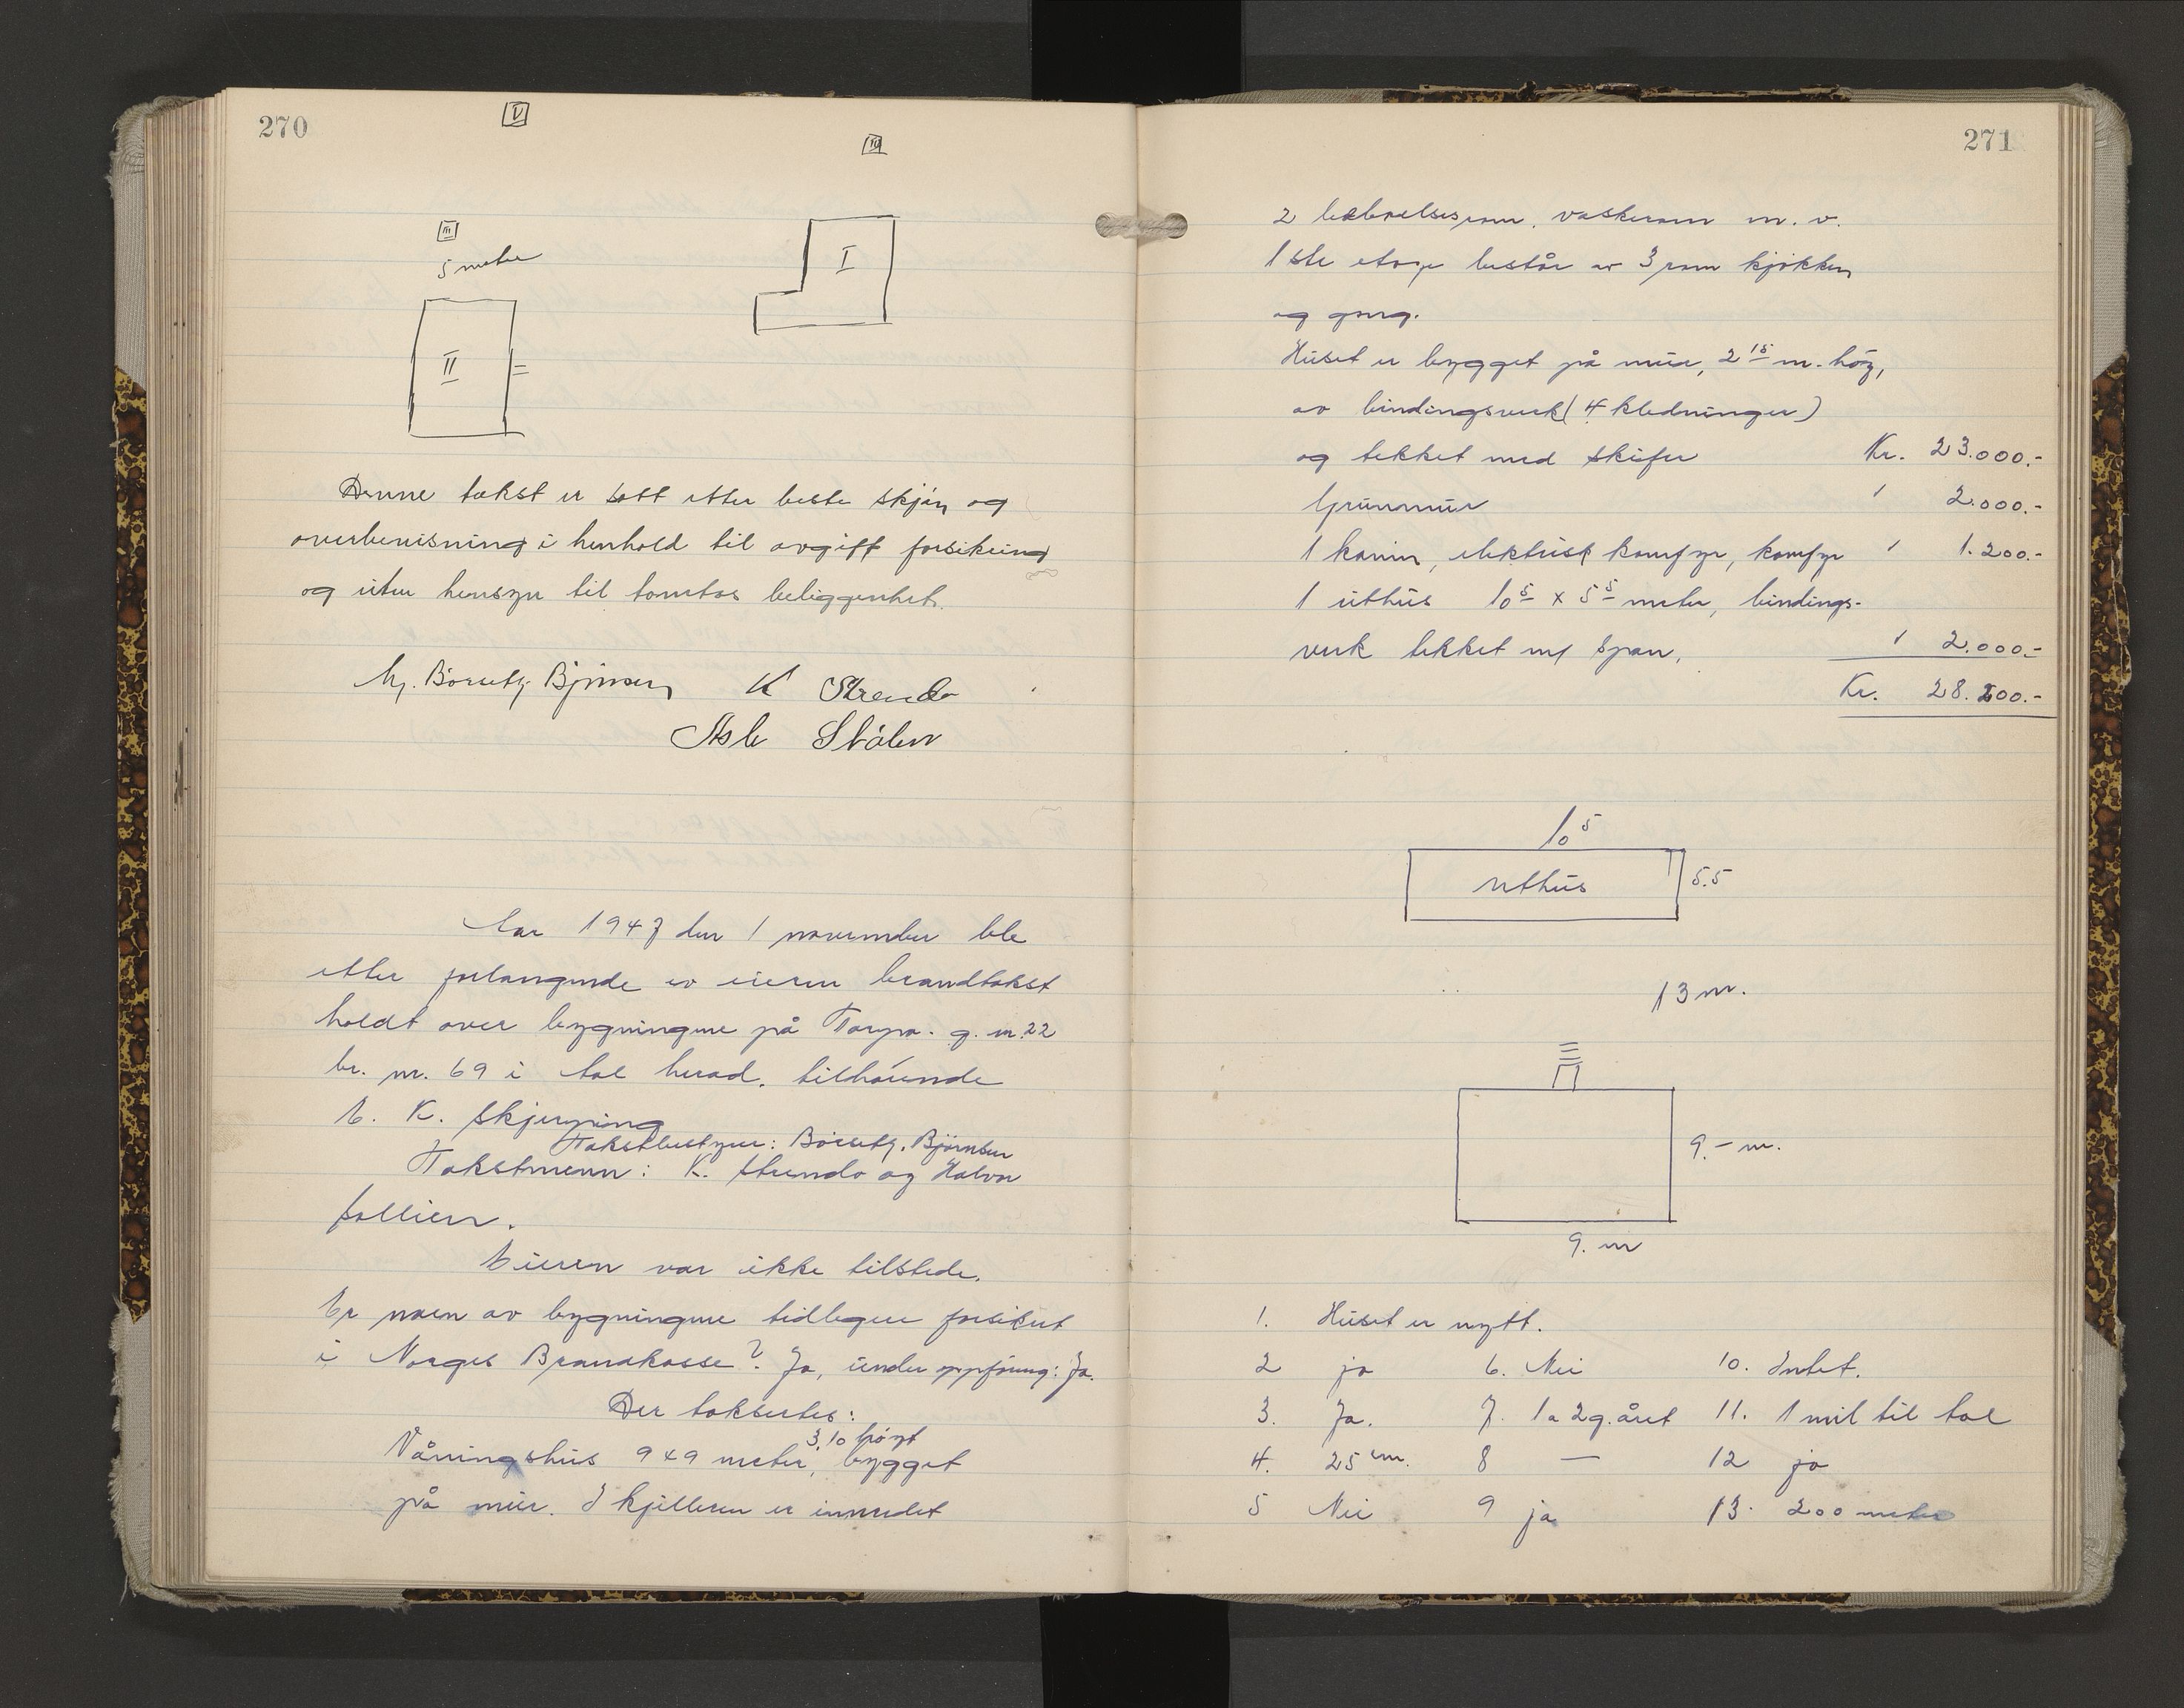 270
V
IV
III
5 meter
I
II
Denne takst er satt etter beste skjøn og
overbevisning i henhold til avgift forsikring
og uten hensyn til tomtas beliggenhet.
Børseth Bjørnsen K Strende
Asle Stålen
Aar 1947 den 1 november ble
etter forlangende av eieren brandtakst
holdt over bygningene på Torpo. g. nr. 22
br. nr. 69 i Aal herad. tilhørende
E. K. Skjerping
Takstbestyrer: Børseth. Bjørnsen
Takstmenn: K. Strende og Halvor
Eieren var ikke tilstede.
Er noen av bygningene tidligere forsikret
i Norges Brandkasse? Ja, under oppføring: Ja.
Der takseres:
3.10 høyt
Våningshus 9x9 meter, bygget
på mur. I kjelleren er innredet
271
2 beboelsesrom. vaskerom m. v.
1ste etage består av 3 rom kjøkken
og gang.
Huset er bygget på mur, 2 15 m. høy,
av bindingsverk (4 kledninger)
og tekket med skifer Kr. 23.000.-
Grunnmur " 2.000.-
1 kamin, elektrisk komfyr, komfyr " 1.200.-
1 uthus 10 5 x 5 5 meter, bindings-
verk tekket m/ spon, " 2.000.-
Kr. 28.200.-
10 5
uthus 5.5
13 m.
9.- m.
9. m
1. Huset er nytt.
2 ja 6. Nei 10. Intet.
3. Ja. 7. 1 a 2 g. året 11. 1 mil til Aal
4. 25 cm. 8 — 12 ja
5 Nei 9 ja 13. 200 meter